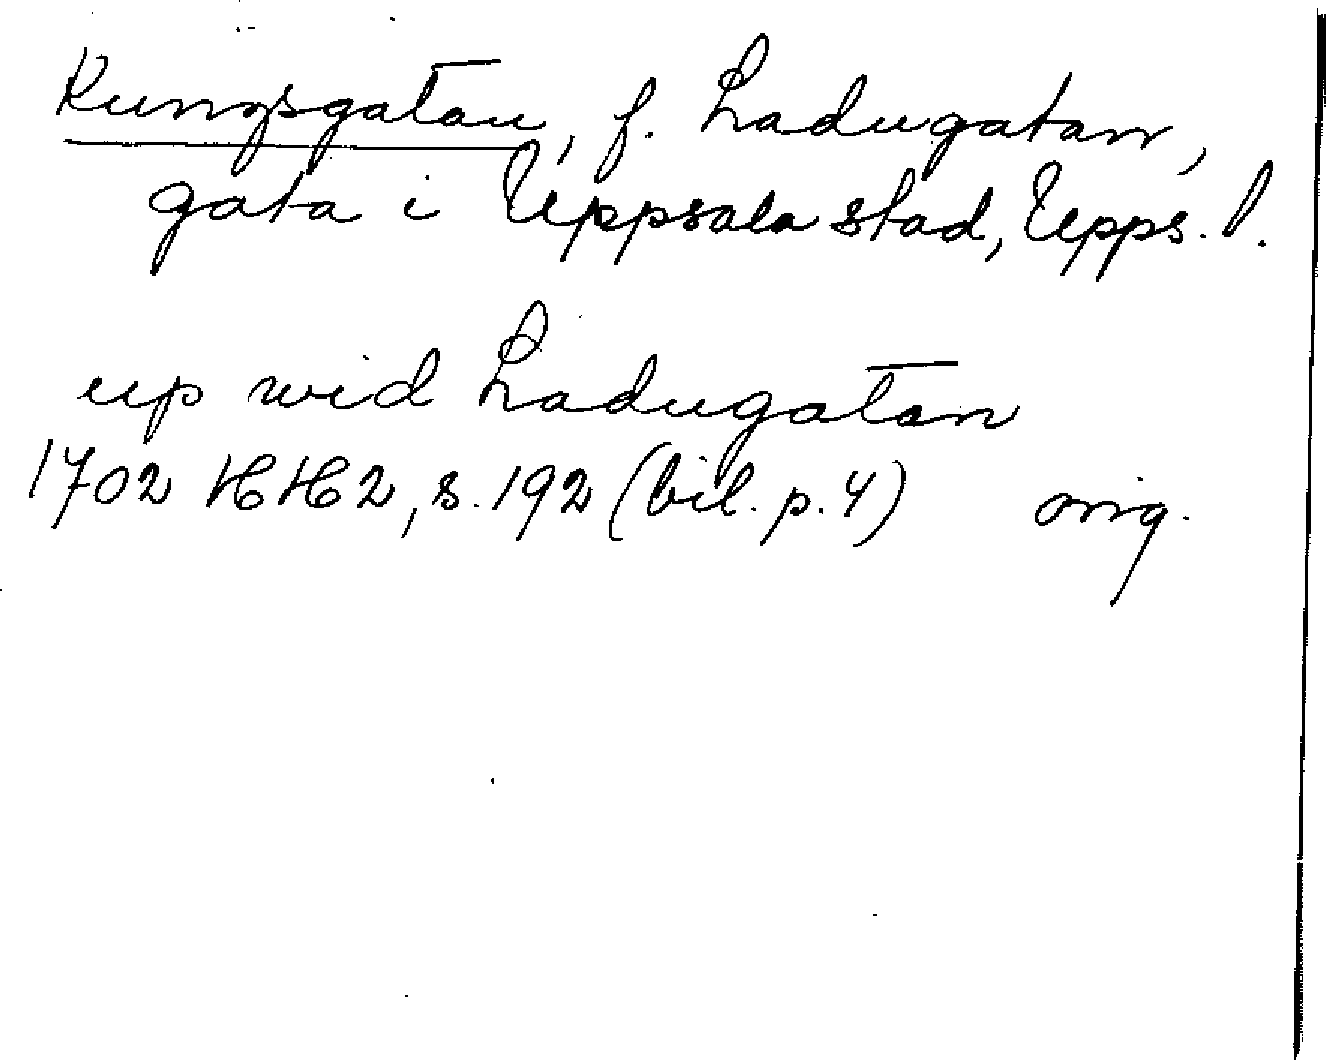 Kungsgatan, f. Ladugatan,
gata i Uppsala stad, Upps. l.
up wid Ladugatan
1702 HH2, s. 192 (bil. p. 4) orig.